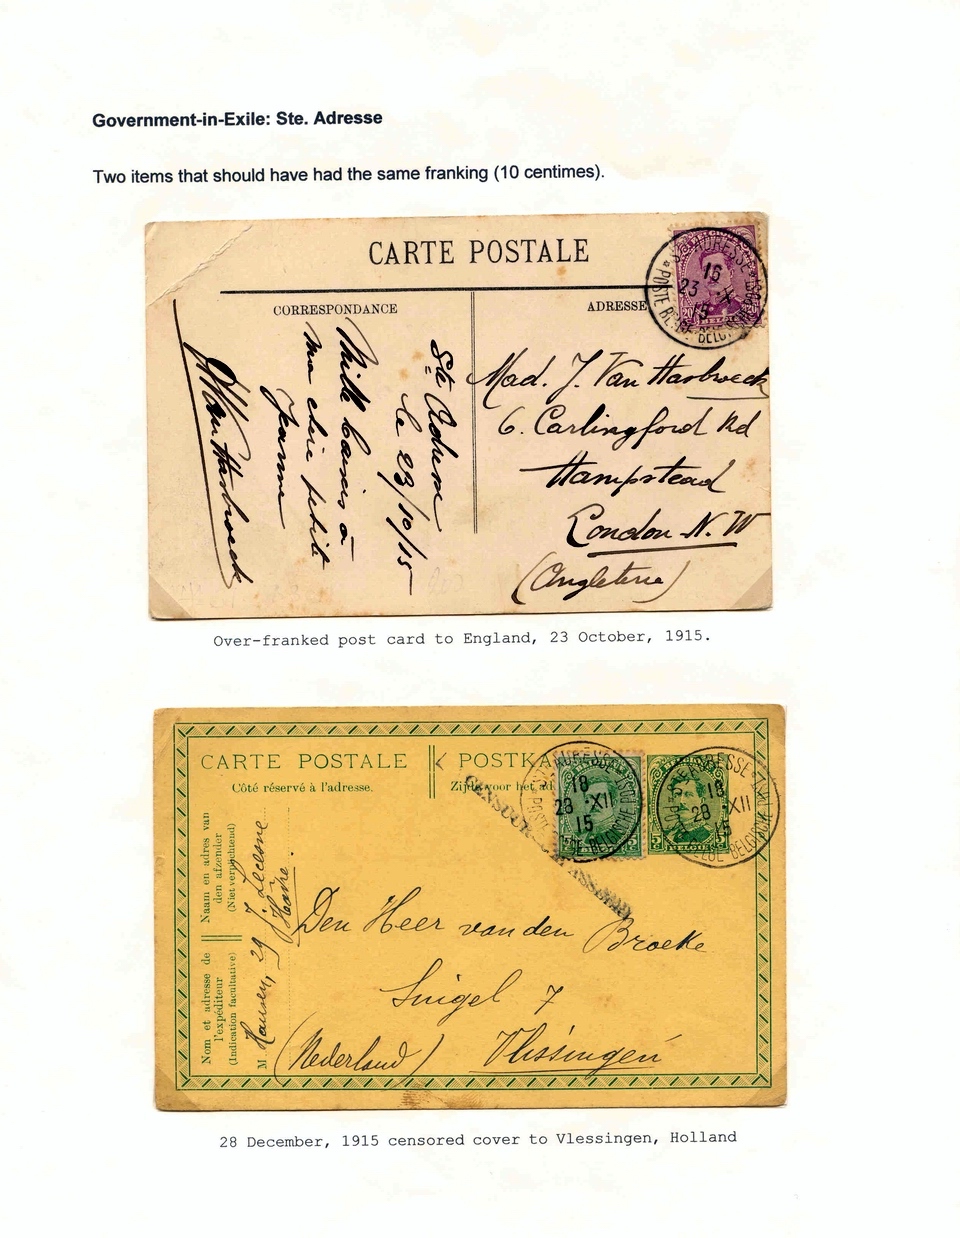 Government-in-Exile: Ste. Adresse
Two items that should have had the same franking (10 centimes).
CARTE POSTALE
CORRESPONDANCE
ADRESSE
STE ADRESSE
16
23 X
15
POSTE BELGE-BELGISCHE POST
20 20
Ste Adresse
le 23/10/15
Mille baisers à
ma chère petite
Jeanne
JVan Harbroeck
Mad. J. Van Harbroeck
6. Carlingford Rd
Hampstead
London N. W
(Angleterre)
Over-franked post card to England, 23 October, 1915.
CARTE POSTALE
Côté réservé à l'adresse.
POSTKA
Zijde voor het ad
STE ADRESSE
18
28 XII
15
POSTE BELGE-BELGISCHE POST
5
STE ADRESSE
18
28 XII
15
POSTE BELGE-BELGISCHE POST
5
BELGIE
Naam en adres van
den afzender
(Niet verplichtend)
Nom et adresse de
l'expéditeur
(Indication facultative)
M Hansen, 29 J. Lecesne
Havre.
Den Heer van den Broeke
Singel 7
(Nederland) Vlissingen
28 December, 1915 censored cover to Vlessingen, Holland